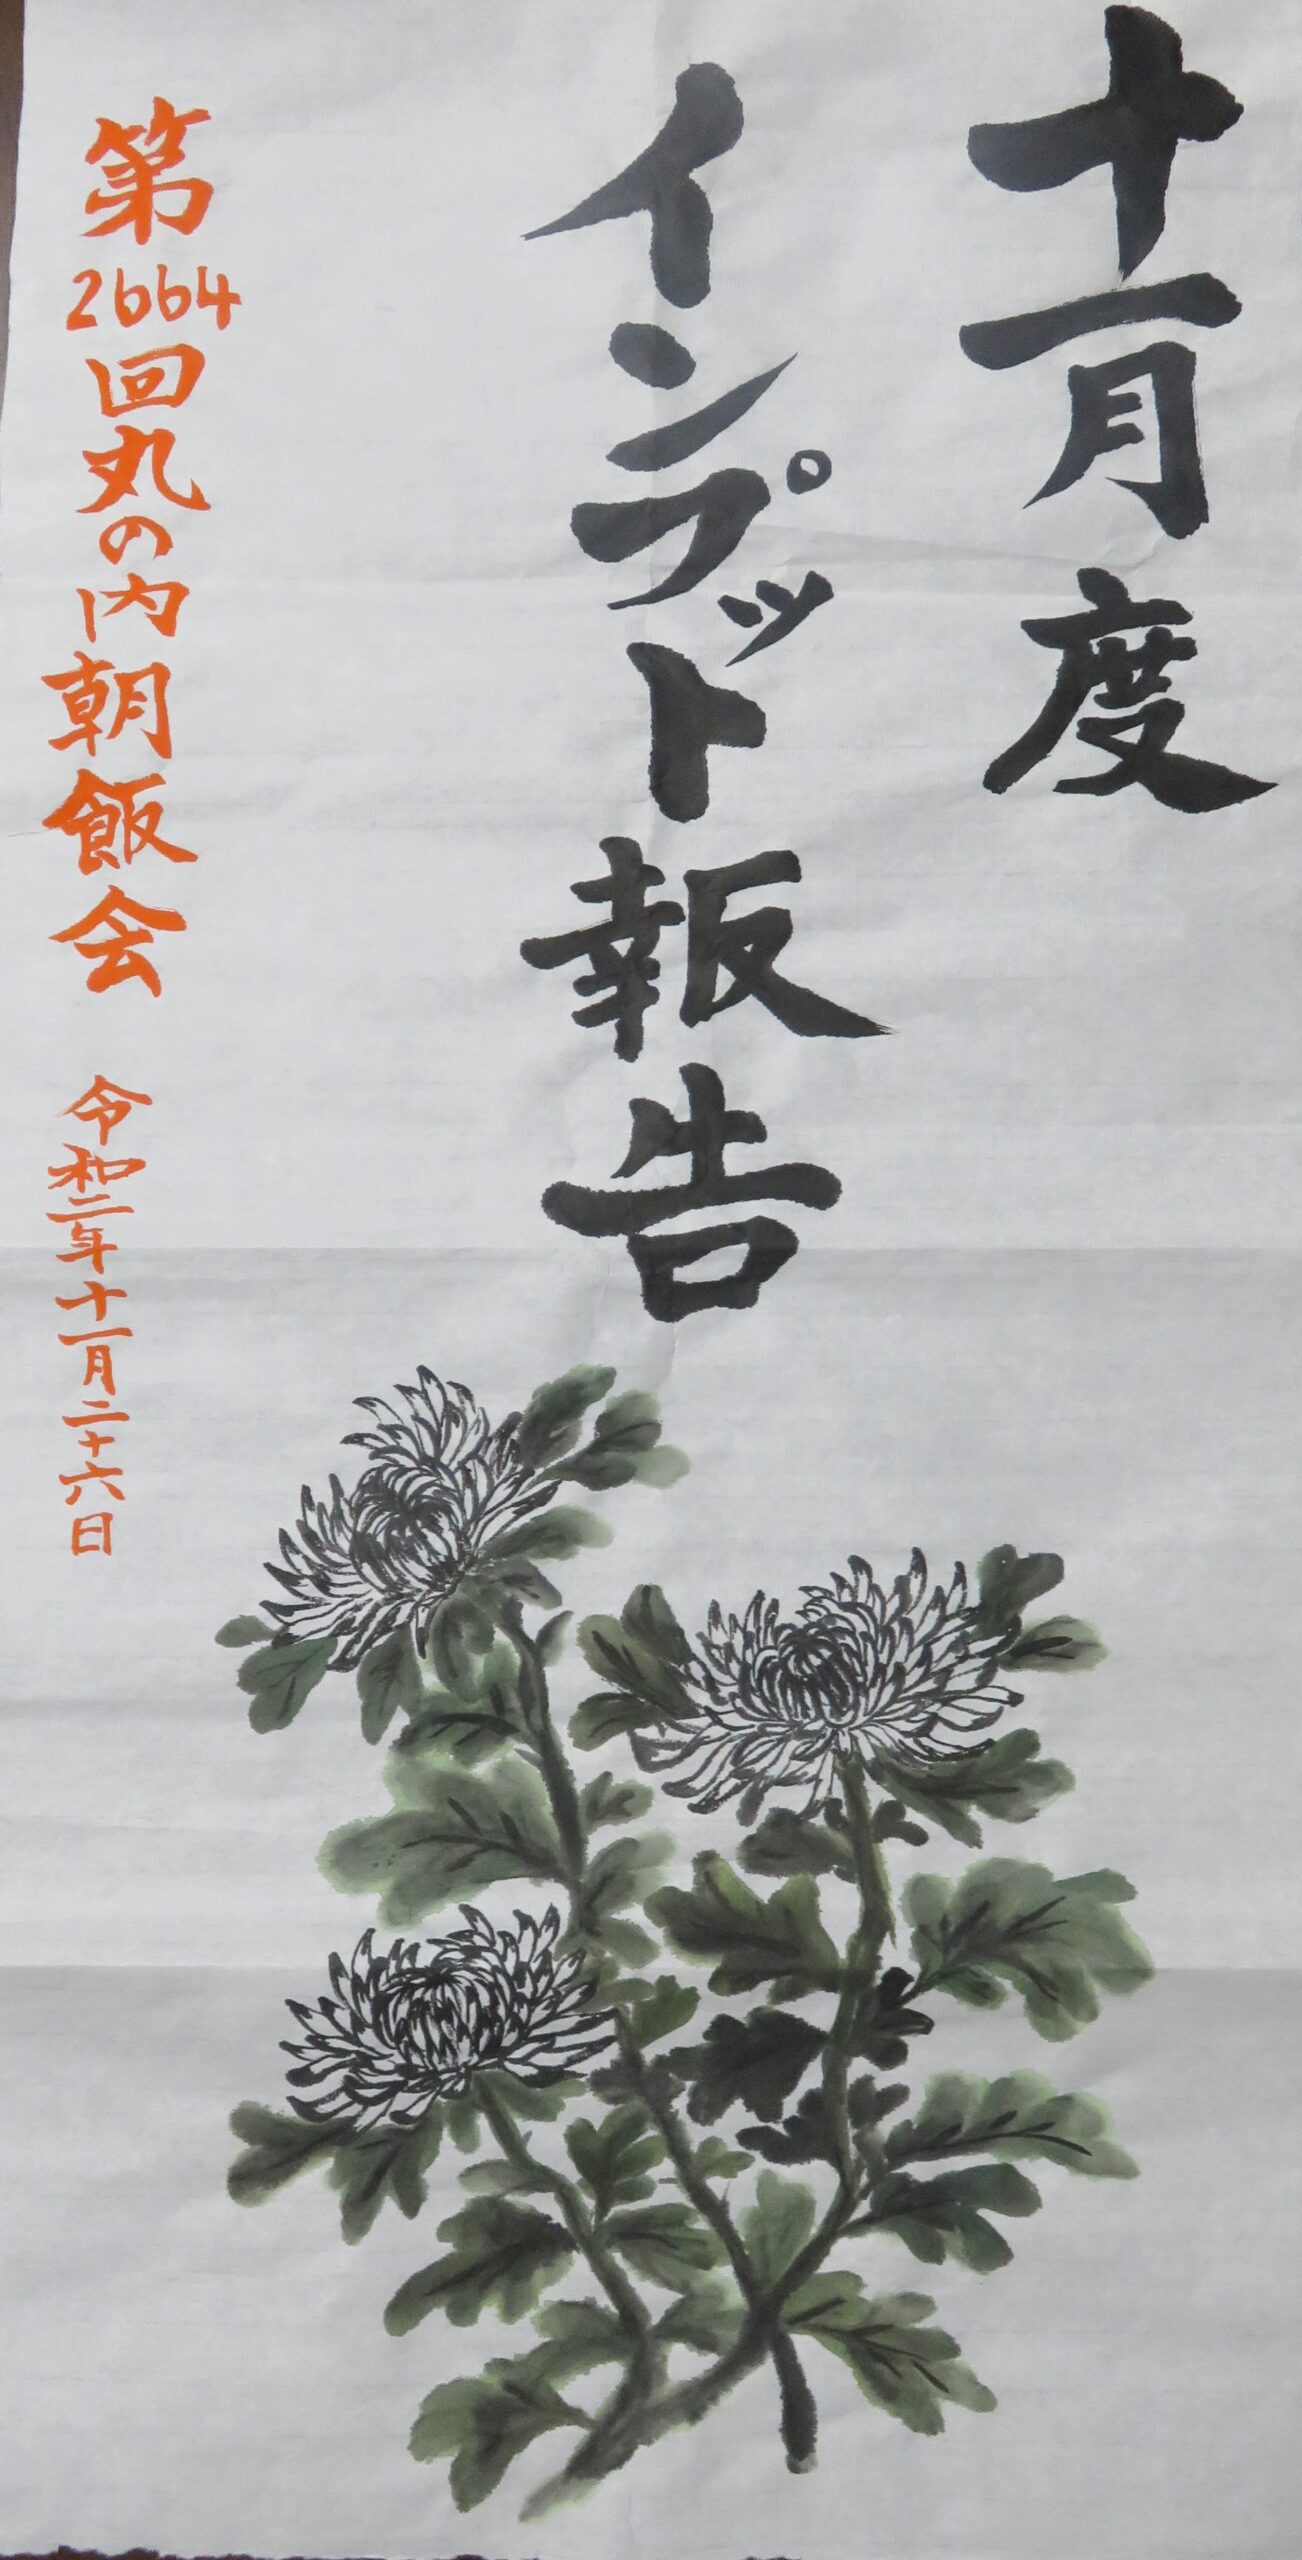 十一月度
インプット報告
第2664回丸の内朝飯会 令和二年十一月二十六日